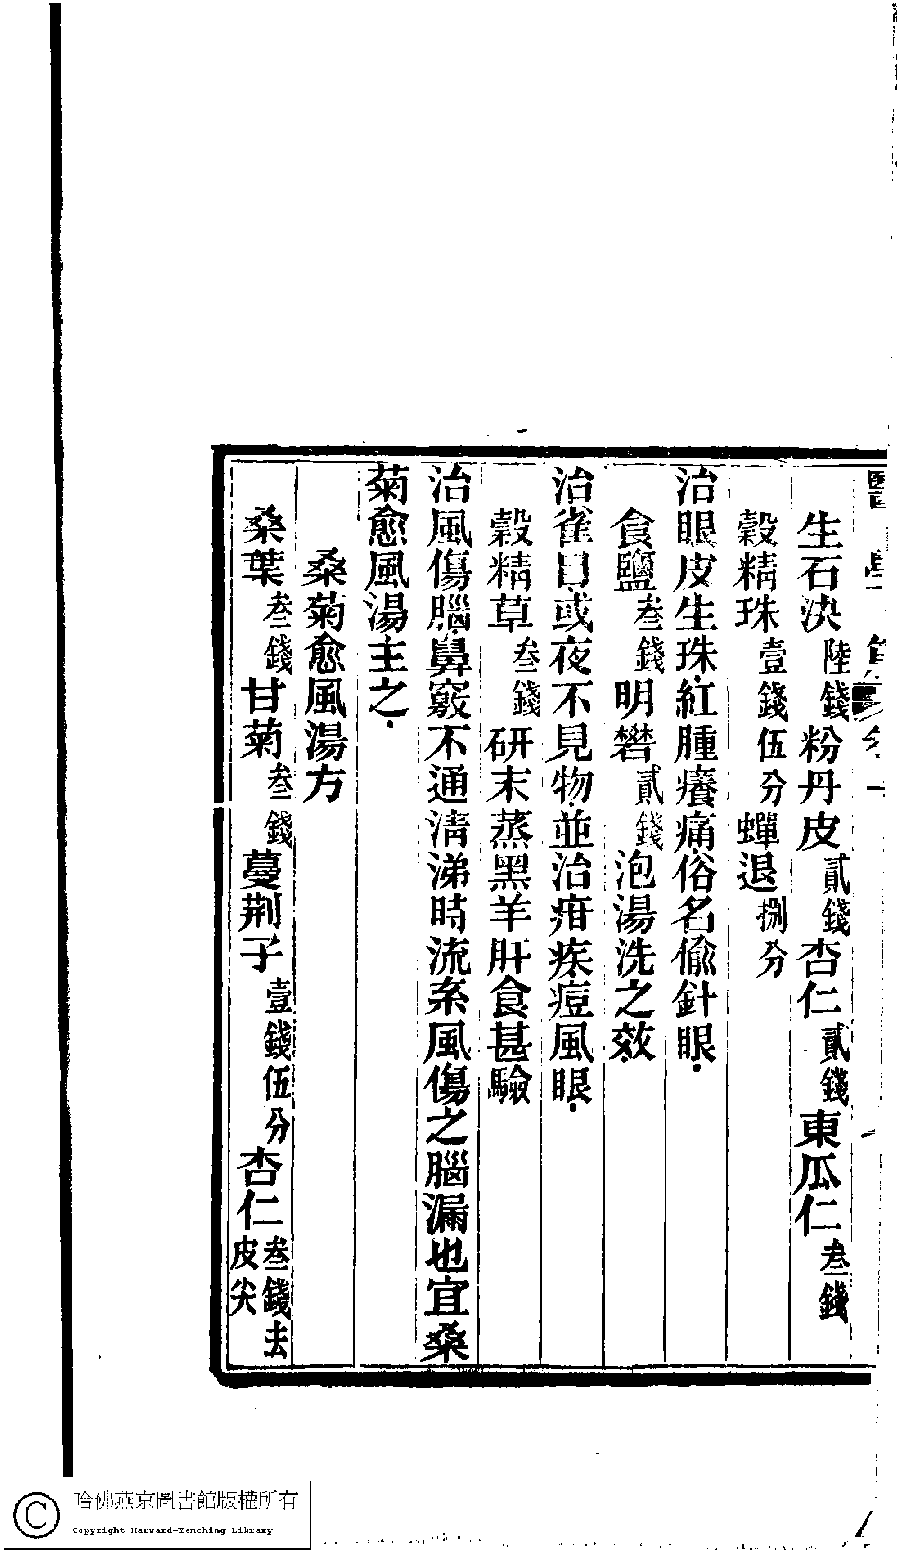 生石决陸錢粉丹皮貳錢杏仁貳錢東瓜仁叁錢
穀精珠壹錢伍分蟬退捌分
治眼皮生珠紅腫癢痛俗名偷針眼
食鹽叁錢明礬貳錢泡湯洗之效
治雀目或夜不見物並治疳疾痘風眼
穀精草叁錢研末蒸黑羊肝食甚驗
治風傷腦鼻竅不通清涕時流系風傷之腦漏也宜桑
菊愈風湯主之
桑菊愈風湯方
桑葉叁錢甘菊叁錢蔓荆子壹錢伍分杏仁叁錢去皮尖
哈佛燕京圖書館版權所有
Copyright Harvard-Yenching Library